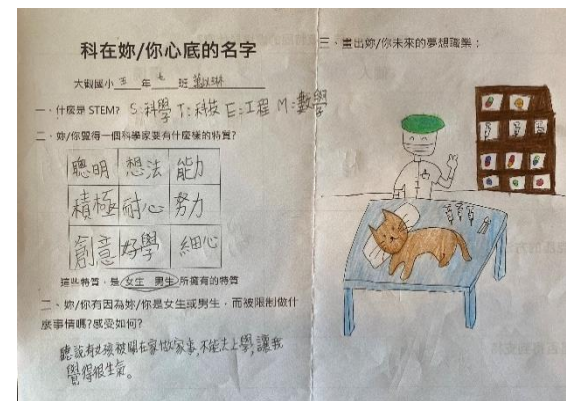 科在妳/你心底的名字
大觀國小 五 年 班
一、什麼是 STEM? S:科學 T:科技 E:工程 M:數學
二、妳/你覺得一個科學家要有什麼樣的特質?
聰明 想法 能力
積極 耐心 努力
創意 好學 細心
這些特質,是 女生 男生 所擁有的特質
二、妳/你有因為妳/你是女生或男生,而被限制做什
麼事情嗎?感受如何?
聽說有女孩被關在家做家事,不能去上學,讓我
覺得很生氣。
三、畫出妳/你未來的夢想職業: